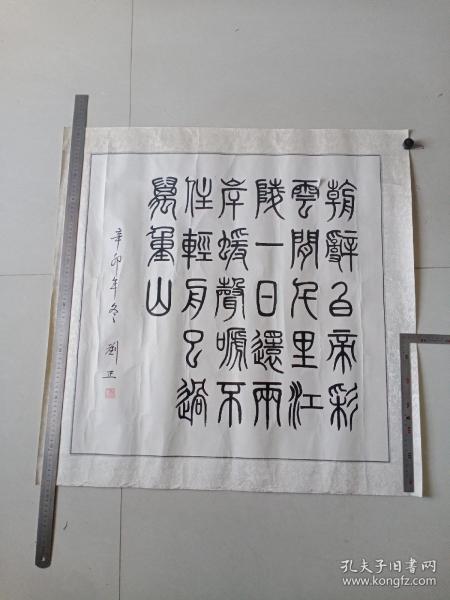 朝辭白帝彩
雲間千里江
陵一日還兩
岸蝯聲嗁不
住輕舟已過
萬重山
辛卯年冬 劉正
孔夫子旧书网
www.kongfz.com